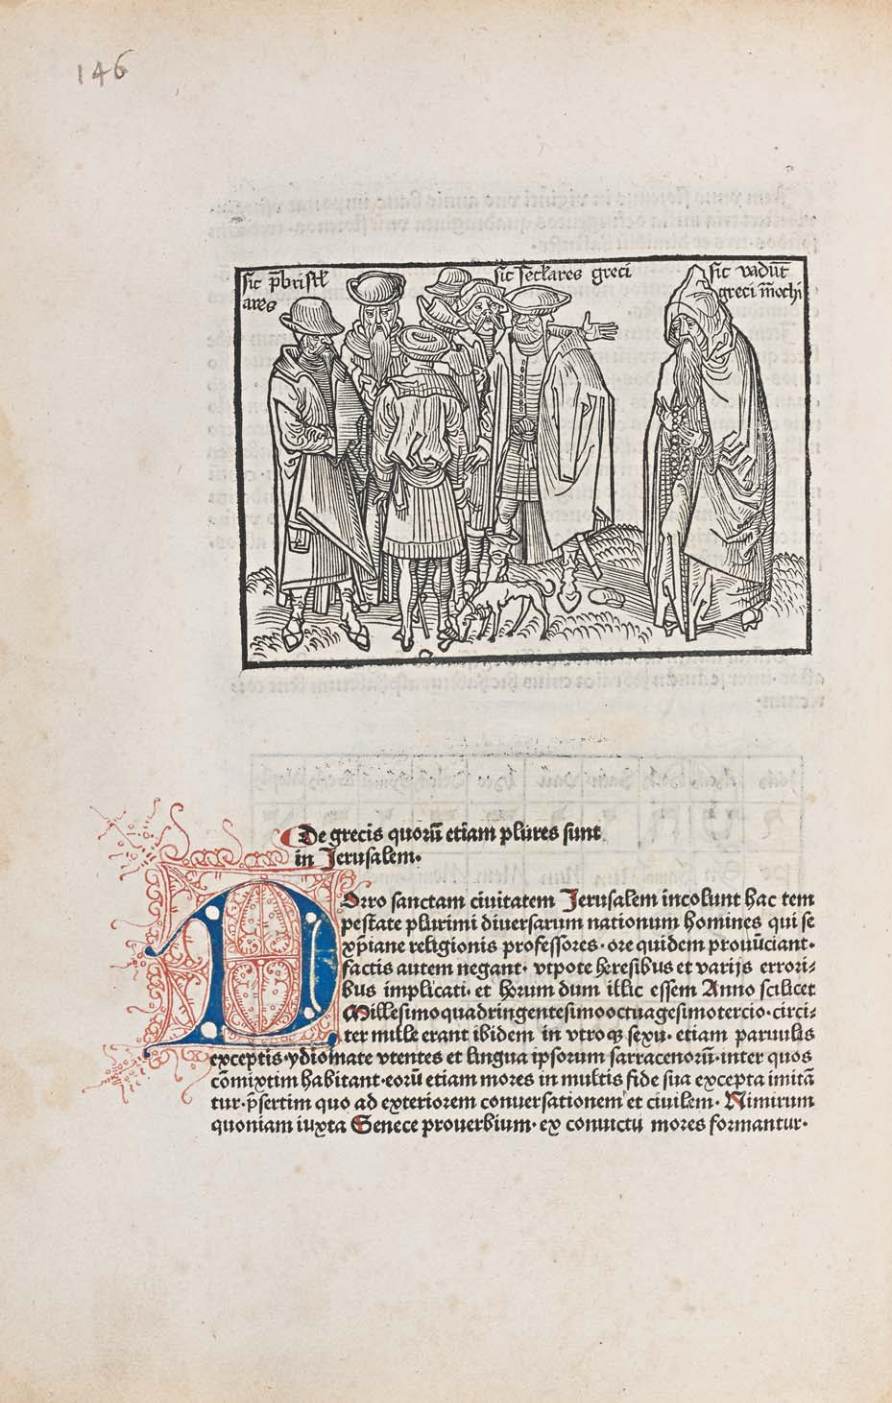 146
sic p̄bristẜ
ares
sic secẜares greci
sic vadūt
greci m̄ochi
De grecis quorū etiam plures sunt
in Jerusalem.
Porro sanctam ciuitatem Jerusalem incolunt hac tem
pestate plurimi diuersarum nationum homines qui se
xp̄iane religionis professores. ore quidem pronūciant.
factis autem negant. vtpote heresibus et varijs errori⸗
bus implicati. et horum dum illic essem Anno scilicet
Millesimoquadringentesimooctuagesimotercio. circi⸗
ter mille erant ibidem in vtroqꝫ sexu. etiam paruulis
exceptis. ydiomate vtentes et lingua ipsorum sarracenorū. inter quos
cōmixtim habitant. eorū etiam mores in multis fide sua excepta imitā
tur. p̄sertim quo ad exteriorem conuersationem et ciuilem. Nimirum
quoniam iuxta Senece prouerbium. ex conuictu mores formantur.